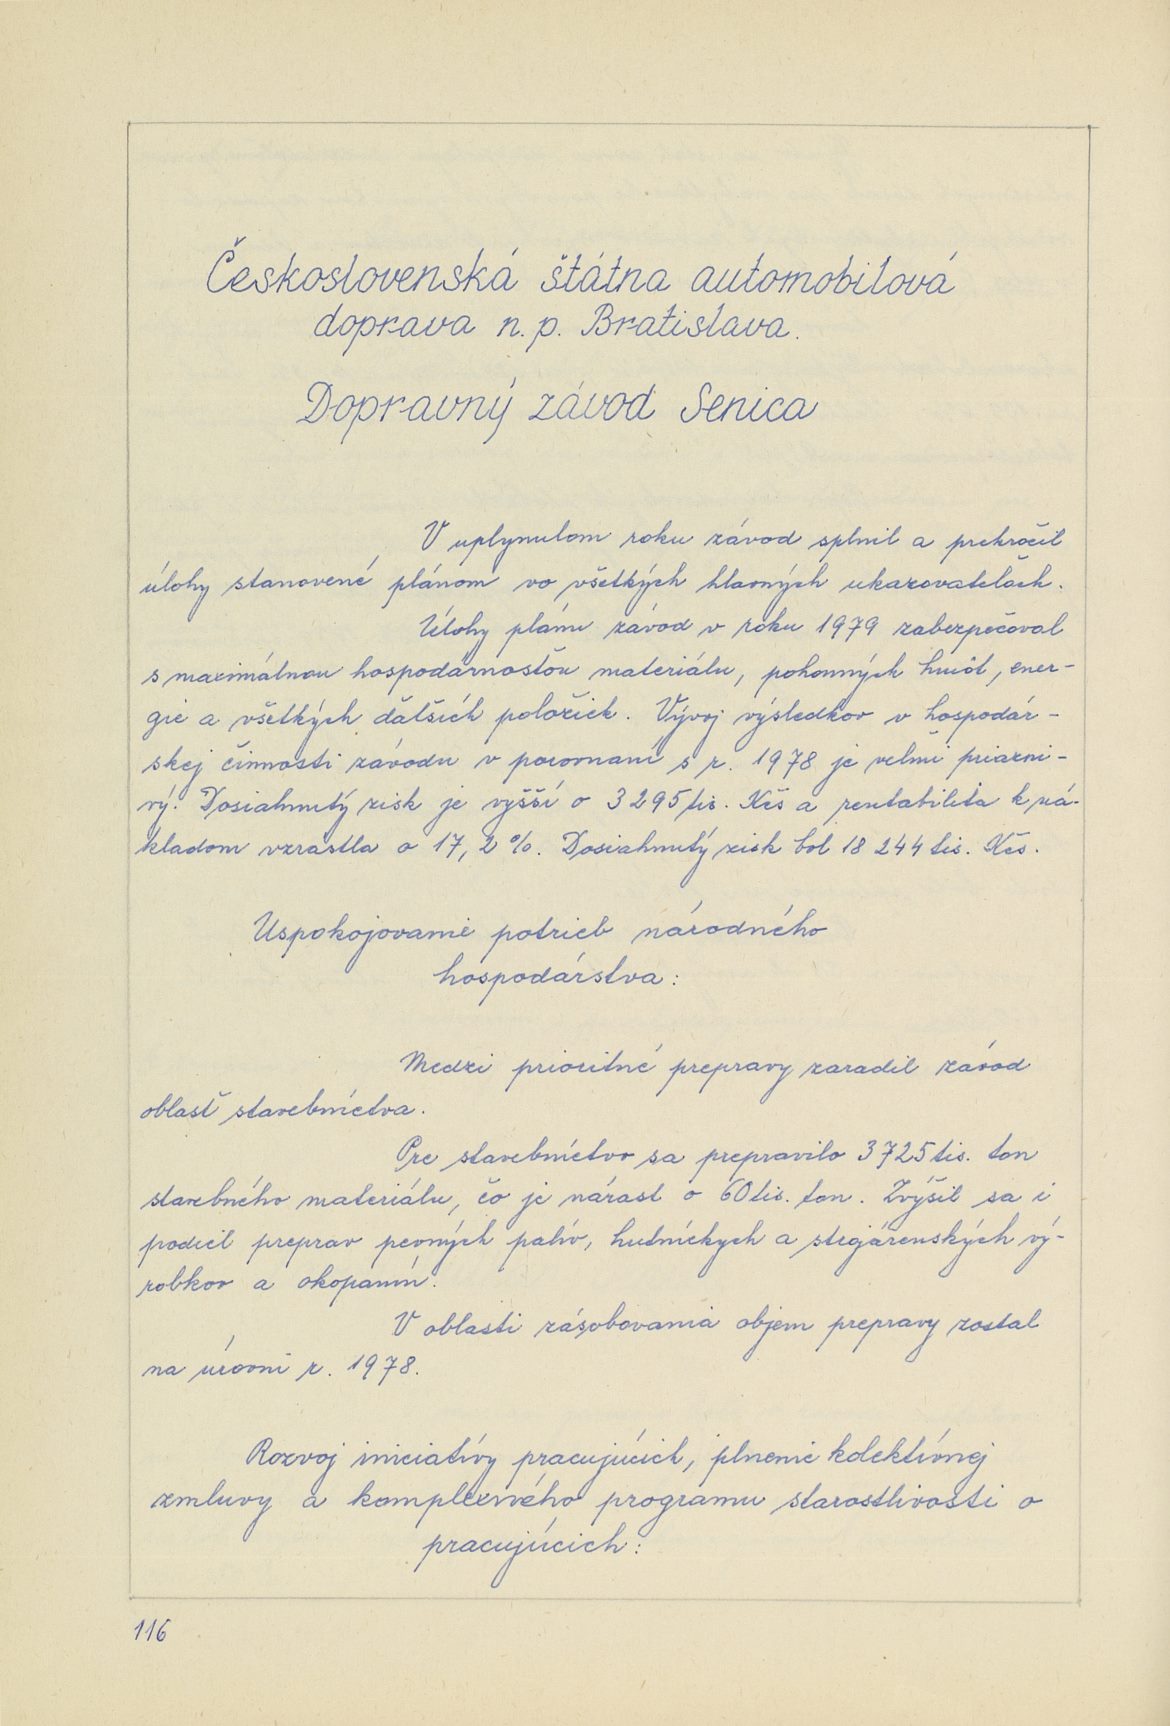 Československá štátna automobilová
doprava n. p. Bratislava.
Dopravný závod Senica
V uplynulom roku závod splnil a prekročil
úlohy stanovené plánom vo všetkých hlavných ukazovateľoch.
Úlohy plánu závod v roku 1979 zabezpečoval
s maximálnou hospodárnosťou materiálu, pohonných hmôt, ener-
gie a všetkých ďalších položiek. Vývoj výsledkov v hospodár-
skej činnosti závodu v porovnaní s r. 1978 je veľmi priazni-
vý. Dosiahnutý zisk je vyšší o 3 295 tis. Kčs a rentabilita k ná-
kladom vzrástla o 17,2 %. Dosiahnutý zisk bol 18 244 tis. Kčs.
Uspokojovanie potrieb národného
hospodárstva:
Medzi prioritné prepravy zaradil závod
oblasť stavebníctva.
Pre stavebníctvo sa prepravilo 3 725 tis. ton
stavebného materiálu, čo je nárast o 60 tis. ton. Zvýšil sa i
podiel preprav pevných palív, hutníckych a strojárenských vý-
robkov a okopanín.
V oblasti zásobovania objem prepravy zostal
na úrovni r. 1978.
Rozvoj iniciatívy pracujúcich, plnenie kolektívnej
zmluvy a komplexného programu starostlivosti o
pracujúcich:
116